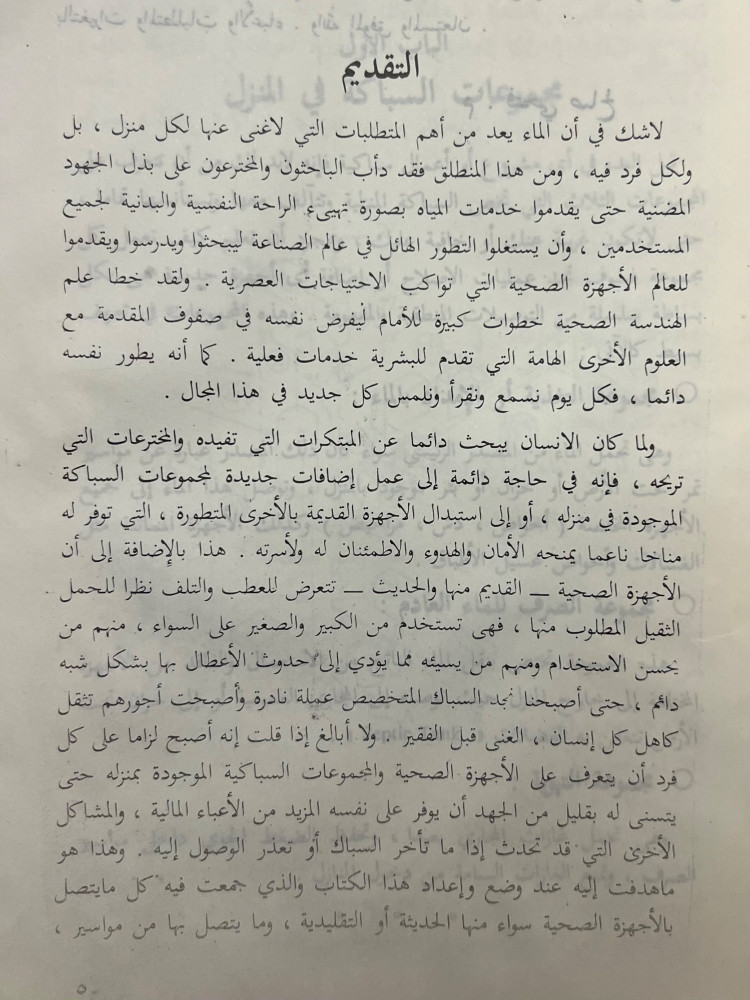 التقديم
لاشك في أن الماء يعد من أهم المتطلبات التي لاغنى عنها لكل منزل ، بل
ولكل فرد فيه ، ومن هذا المنطلق فقد دأب الباحثون والمخترعون على بذل الجهود
المضنية حتى يقدموا خدمات المياه بصورة تهيىء الراحة النفسية والبدنية لجميع
المستخدمين ، وأن يستغلوا التطور الهائل في عالم الصناعة ليبحثوا ويدرسوا ويقدموا
للعالم الأجهزة الصحية التي تواكب الاحتياجات العصرية . ولقد خطا علم
الهندسة الصحية خطوات كبيرة للأمام ليفرض نفسه في صفوف المقدمة مع
العلوم الأخرى الهامة التي تقدم للبشرية خدمات فعلية . كما أنه يطور نفسه
دائما ، فكل يوم نسمع ونقرأ ونلمس كل جديد في هذا المجال .
ولما كان الانسان يبحث دائما عن المبتكرات التي تفيده والمخترعات التي
تريحه ، فإنه في حاجة دائمة إلى عمل إضافات جديدة لمجموعات السباكة
الموجودة في منزله ، أو إلى استبدال الأجهزة القديمة بالأخرى المتطورة ، التي توفر له
مناخا ناعما يمنحه الأمان والهدوء والاطمئنان له ولأسرته . هذا بالإضافة إلى أن
الأجهزة الصحية — القديم منها والحديث — تتعرض للعطب والتلف نظرا للحمل
الثقيل المطلوب منها ، فهى تستخدم من الكبير والصغير على السواء ، منهم من
يحسن الاستخدام ومنهم من يسيئه مما يؤدي إلى حدوث الأعطال بها بشكل شبه
دائم ، حتى أصبحنا نجد السباك المتخصص عملة نادرة وأصبحت أجورهم تثقل
كاهل كل إنسان ، الغنى قبل الفقير . ولا أبالغ إذا قلت إنه أصبح لزاما على كل
فرد أن يتعرف على الأجهزة الصحية والمجموعات السباكية الموجودة بمنزله حتى
يتسنى له بقليل من الجهد أن يوفر على نفسه المزيد من الأعباء المالية ، والمشاكل
الأخرى التي قد تحدث إذا ما تأخر السباك أو تعذر الوصول إليه . وهذا هو
ماهدفت إليه عند وضع وإعداد هذا الكتاب والذي جمعت فيه كل مايتصل
بالأجهزة الصحية سواء منها الحديثة أو التقليدية ، وما يتصل بها من مواسير ،
٥